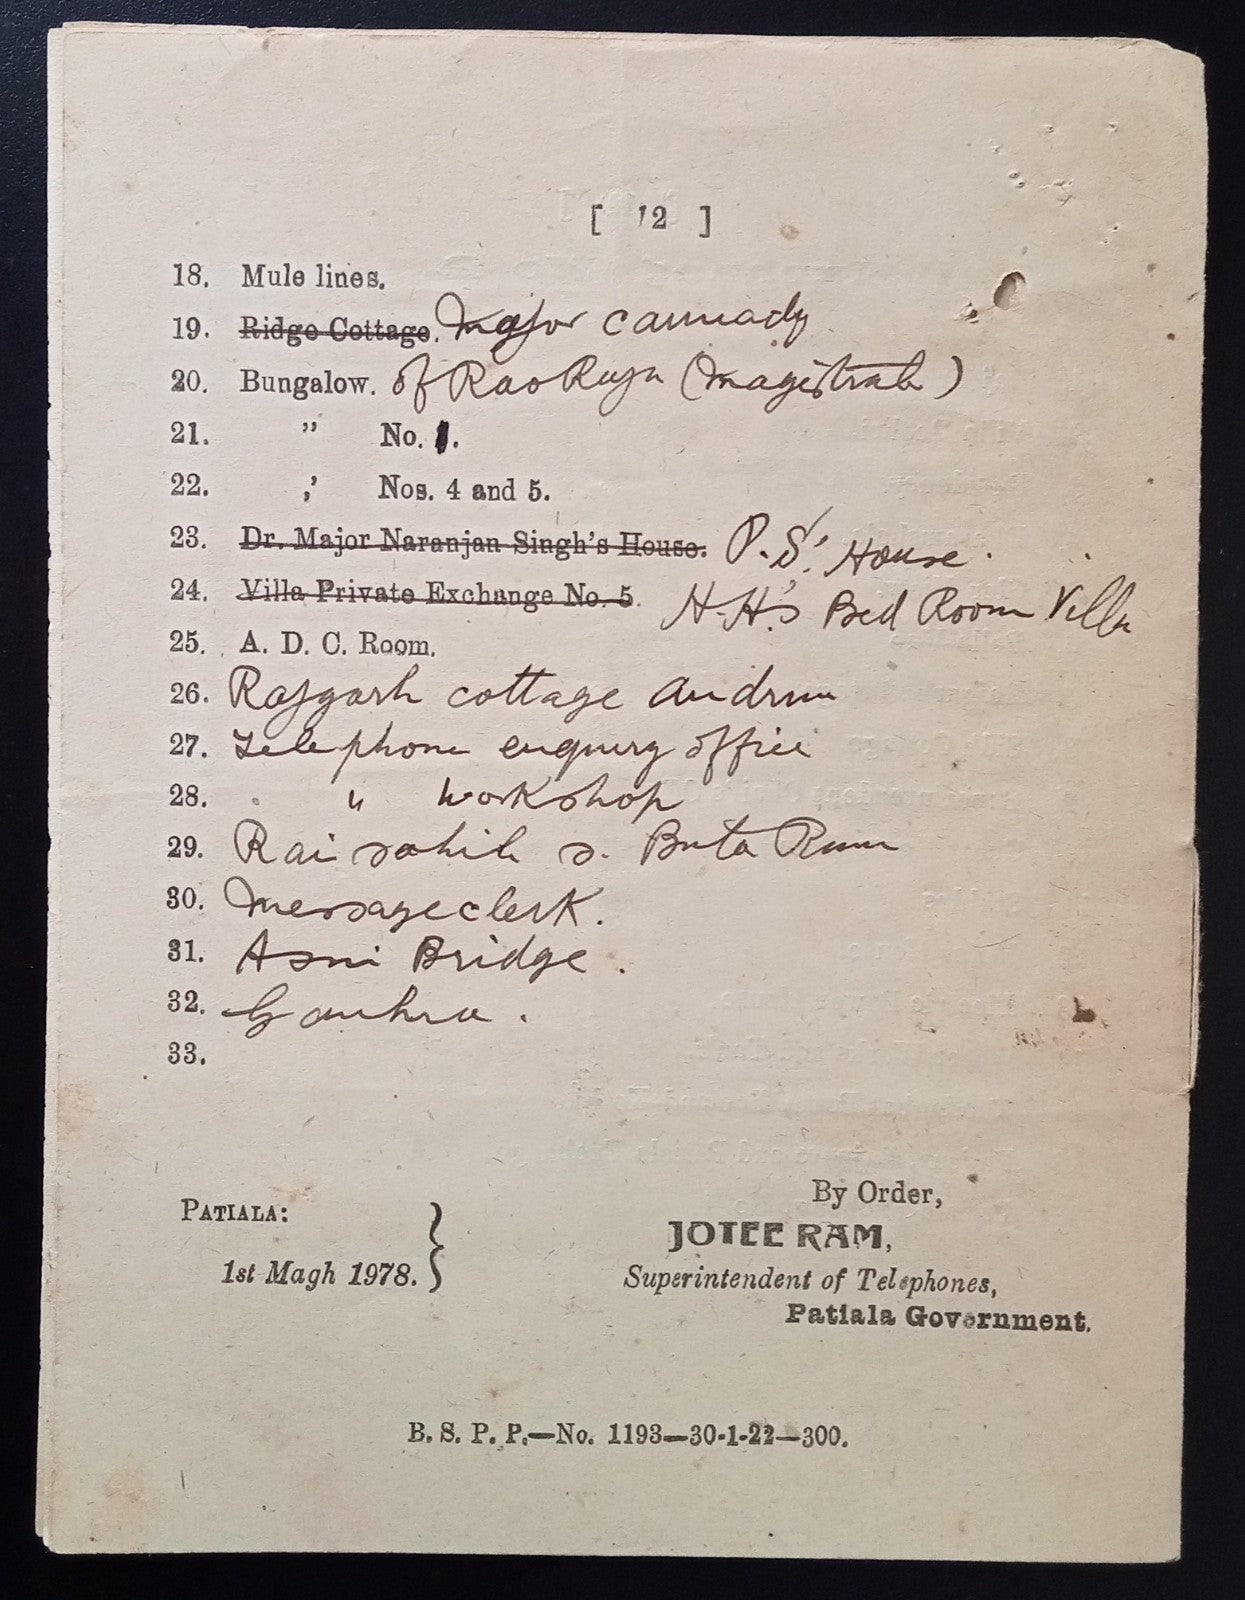 [ 12 ]
18. Mule lines.
19. Ridge Cottage. Major
20. Bungalow. of Rao Raja (Magistrate)
21. ” No. 1.
22. ,’ Nos. 4 and 5.
23. Dr. Major Naranjan Singh’s House. P. S.' House.
24. Villa Private Exchange No. 5. H.H.'s Bed Room Villa
25. A. D. C. Room.
26. Rajgarh cottage
27. Telephone enquiry office
28. " workshop
29. Rai sahib S. Buta Ram
30. Message clerk.
31. Asni Bridge.
32.
33.
PATIALA:
1st Magh 1978.
By Order,
JOTEE RAM,
Superintendent of Telephones,
Patiala Government.
B. S. P. P.—No. 1193—30-1-22—300.